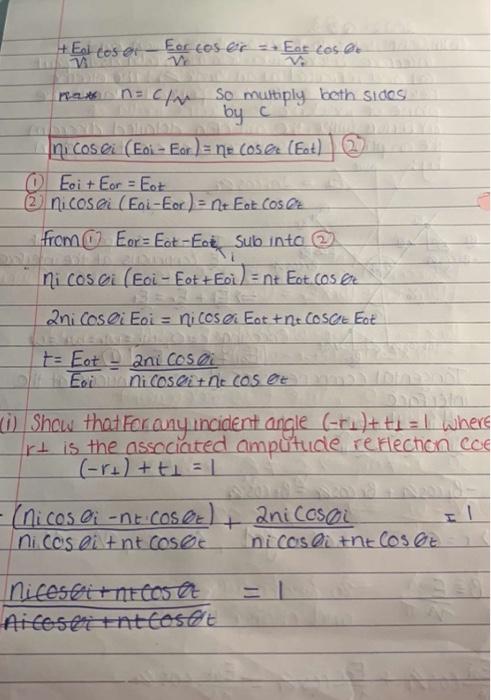 + Eoi/Vi cos θi - Eor/Vr cos θr = + Eot/Vt cos θt
n = c/v so multiply both sides
by c
ni cosθi (Eoi - Eor) = nt cosθt (Eot) ②
① Eoi + Eor = Eot
② ni cosθi (Eoi - Eor) = nt Eot cosθt
from ① Eor = Eot - Eoi sub into ②
ni cosθi (Eoi - Eot + Eoi) = nt Eot cosθt
2ni cosθi Eoi = ni cosθi Eot + nt cosθt Eot
t = Eot/Eoi = 2ni cosθi / ni cosθi + nt cosθt
(i) Show that for any incident angle (-r⊥) + t⊥ = 1 where
r⊥ is the associated amplitude reflection coe
(-r⊥) + t⊥ = 1
- (ni cosθi - nt cosθt) / ni cosθi + nt cosθt + 2ni cosθi / ni cosθi + nt cosθt = 1
ni cosθi + nt cosθt / ni cosθi + nt cosθt = 1